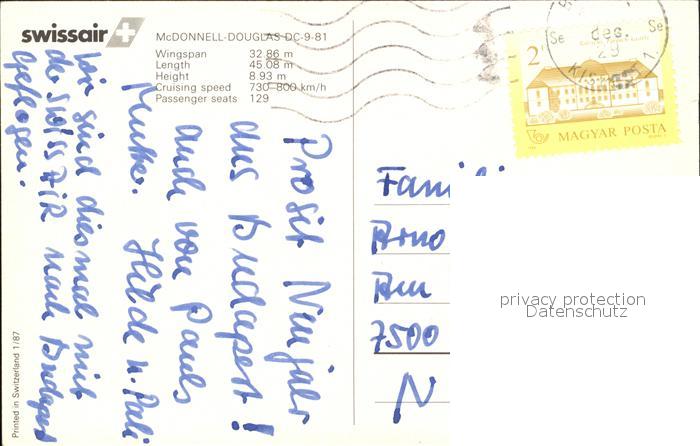 swissair
McDONNELL-DOUGLAS DC-9-81
Wingspan 32.86 m
Length 45.08 m
Height 8.93 m
Cruising speed 730-800 km/h
Passenger seats 129
Prosit Neujahr
aus Budapest!
auch von Pauls
Mutter.
Hilde u. Pali
Wir sind diesmal mit
der SWISSAIR nach Budapest
geflogen.
Printed in Switzerland 1/87
Se Se
des.
29
2
MAGYAR POSTA
Famili
Arno
Am
7500
privacy protection
Datenschutz